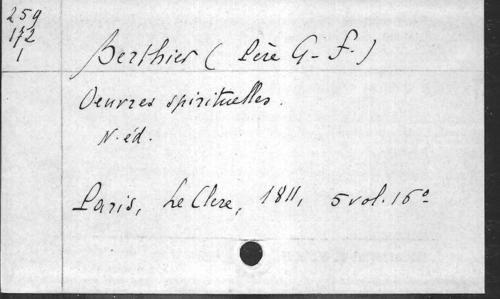 259
172
1
Berthier (Père G-F.)
Oeuvres spirituelles.
N. éd.
Paris, Le Clere, 1811, 5 vol. 16º